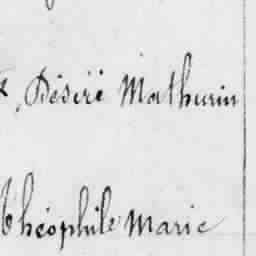 Désiré Mathurin
Théophile Marie